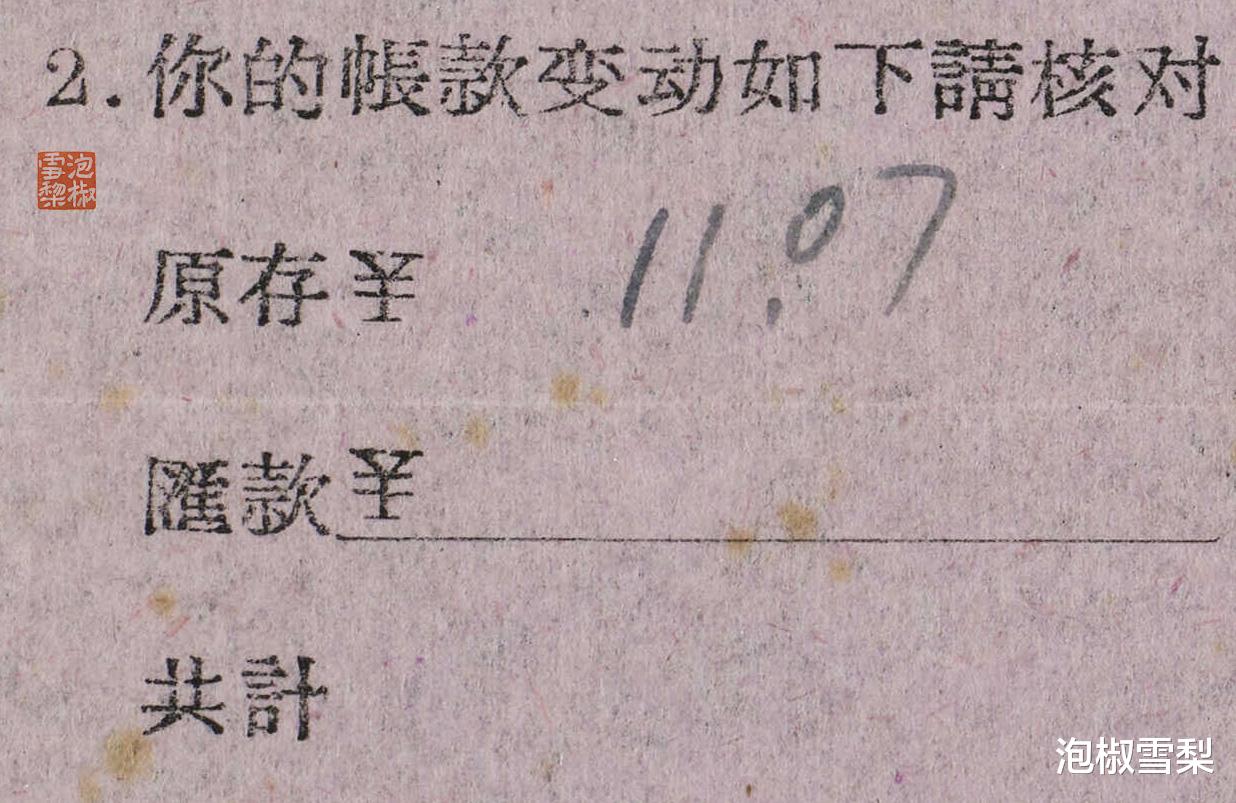 2. 你的帳款变动如下請核对
泡椒
雪梨
原存¥ 11.07
匯款¥
共計
泡椒雪梨